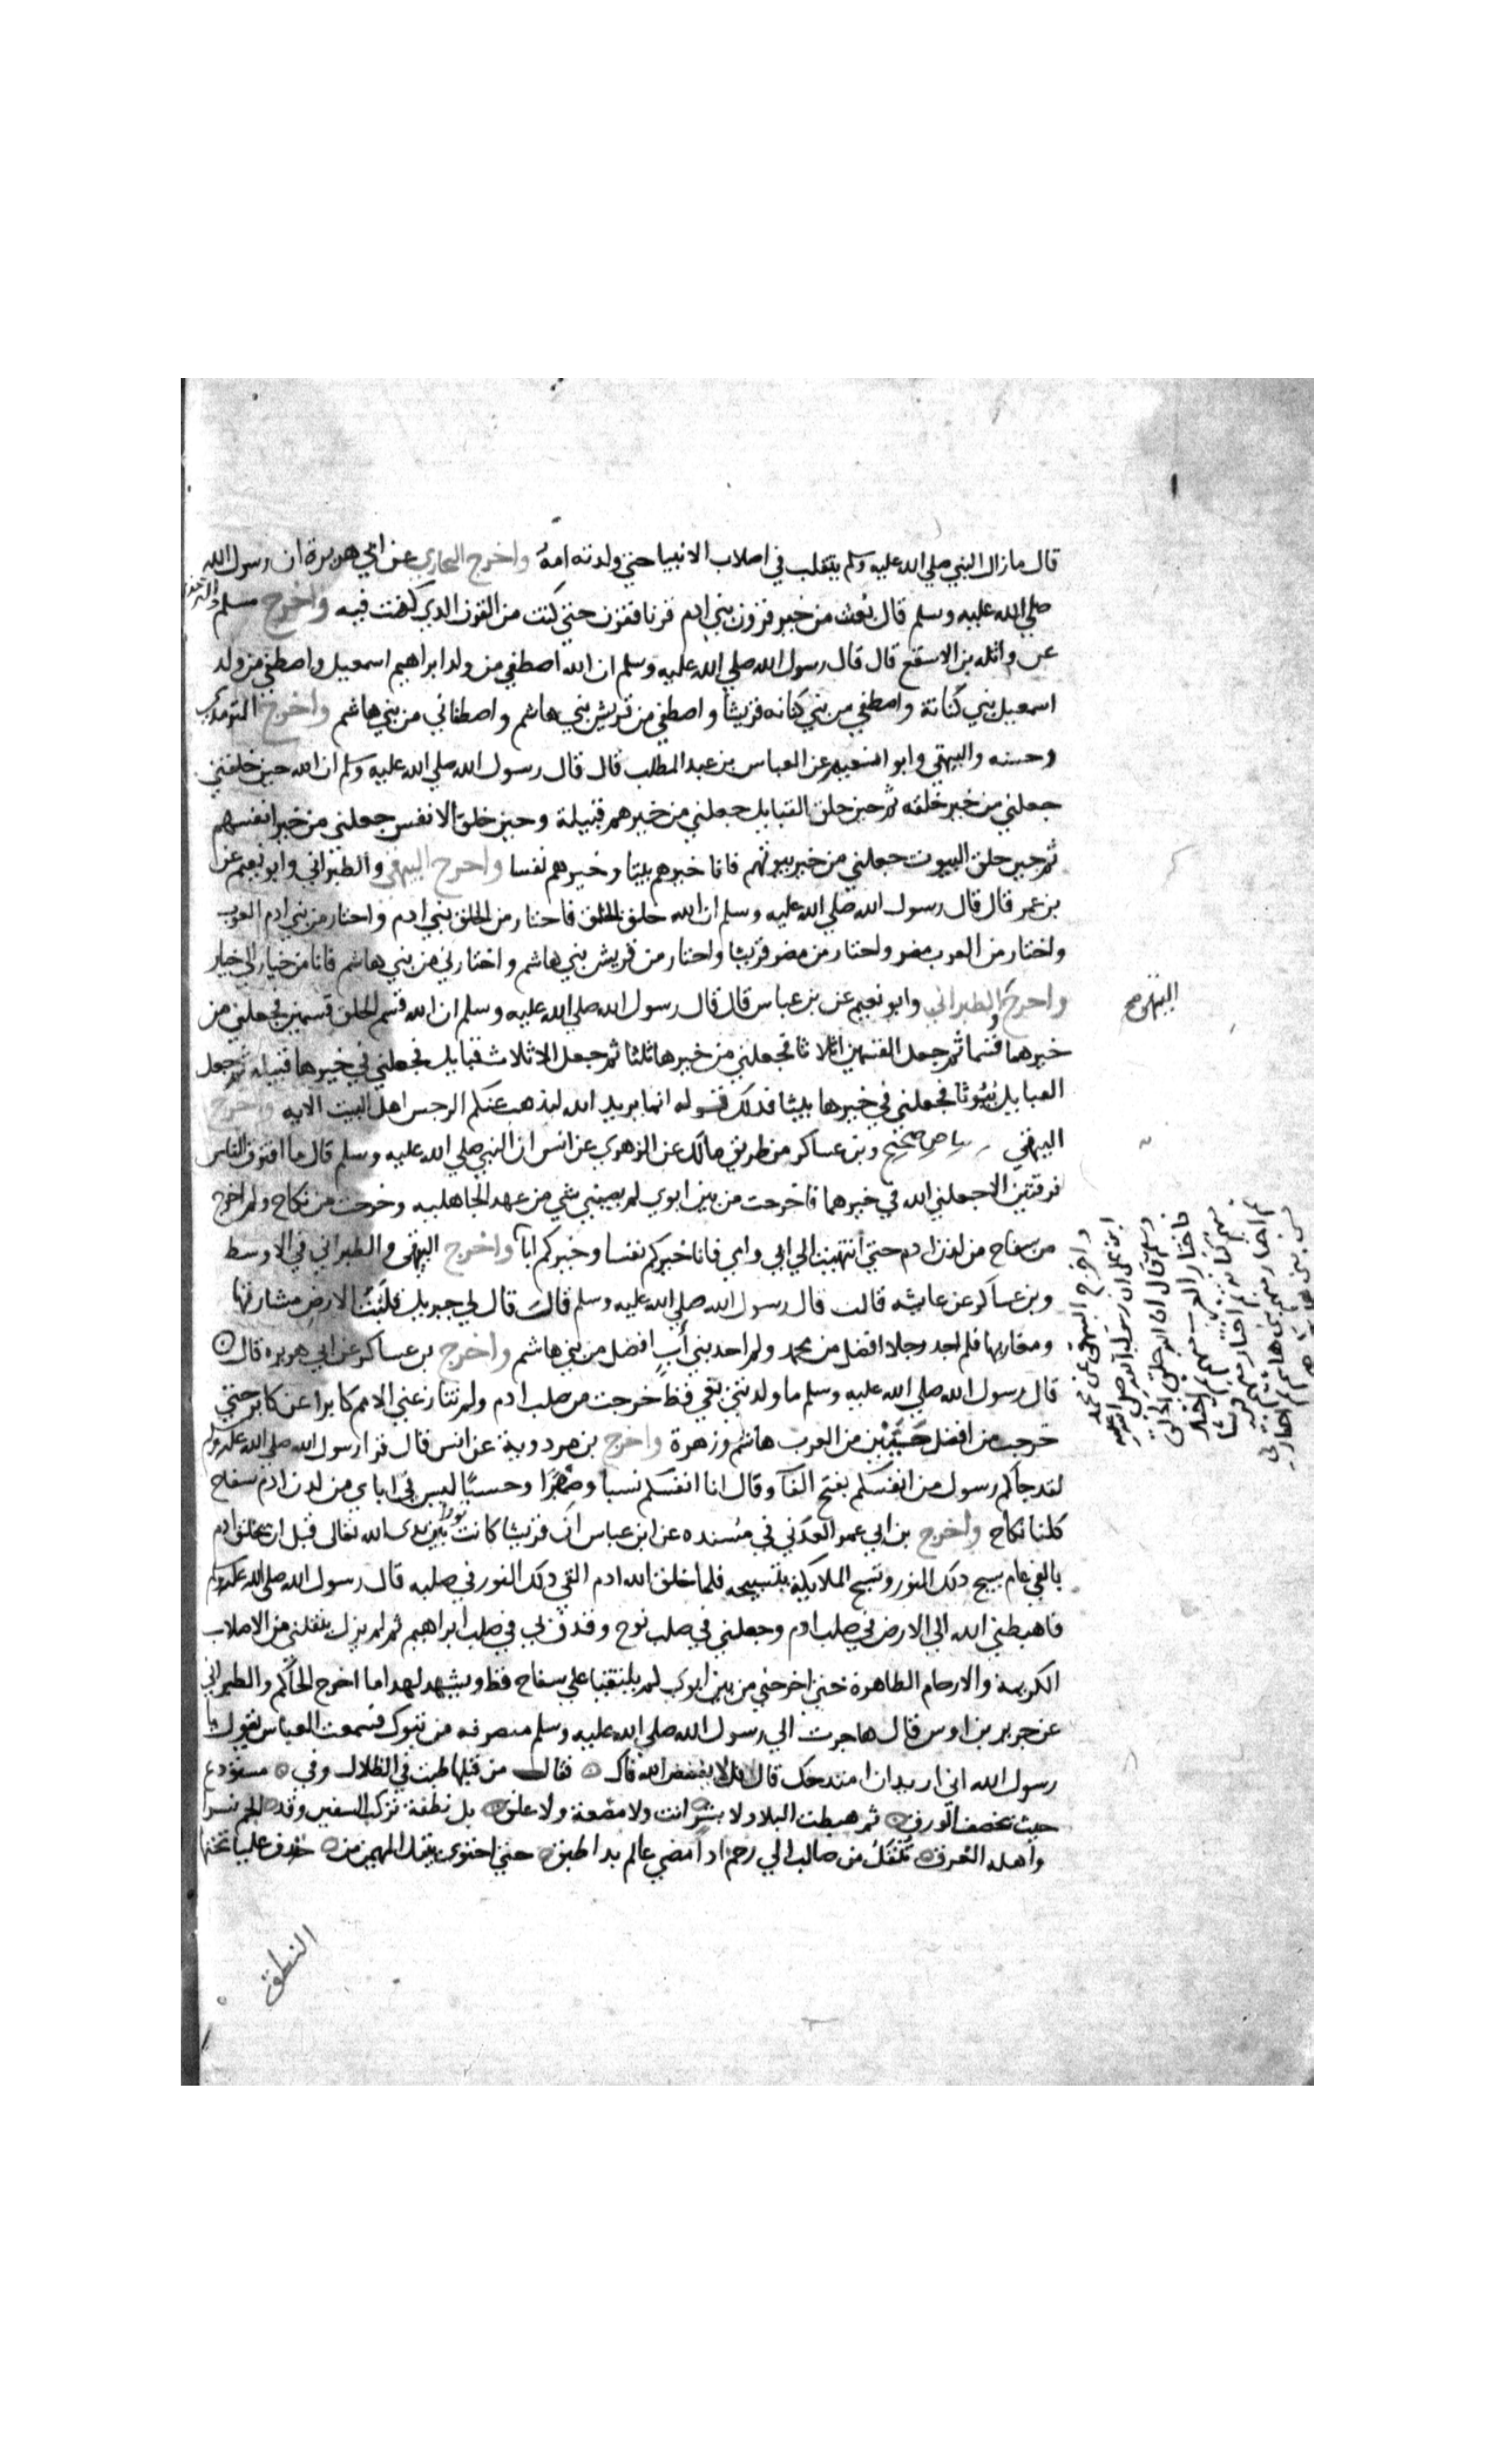 قال مازال النبي صلي الله عليه وسلم يتقلب في اصلاب الانبيا حتي ولدته امه واخرج البخاري عن ابي هريرة ان رسول الله
صلي الله عليه وسلم قال بعثت من خير قرون بني ادم قرنا فقرن حتي كنت من القرن الذي كنت فيه واخرج مسلم والترمذي
عن واثله بن الاسقع قال قال رسول الله صلي الله عليه وسلم ان الله اصطفي من ولد ابراهيم اسمعيل واصطفي من ولد
اسمعيل بني كنانة واصطفي من بني كنانه قريشا واصطفي من قريش بني هاشم واصطفاني من بني هاشم واخرج الترمدي
وحسنه والبيهقي وابو نعيم عن العباس بن عبد المطلب قال قال رسول الله صلي الله عليه وسلم ان الله حين خلقني
جعلني من خير خلقه ثم حين خلق القبايل جعلني من خيرهم قبيلة وحين خلق الانفس جعلني من خير انفسهم
ثم حين خلق البيوت جعلني من خير بيوتهم فانا خيرهم بيتا وخيرهم نفسا واخرج البيهقي والطبراني وابو نعيم عن
بن عمر قال قال رسول الله صلي الله عليه وسلم ان الله خلق الخلق فاختار من الخلق بني ادم واختار من بني ادم العرب
واختار من العرب مضر واختار من مضر قريشا واختار من قريش بني هاشم واختارني من بني هاشم فانا من خيار الي خيار
واخرج والطبراني وابو نعيم عن بن عباس قال قال رسول الله صلي الله عليه وسلم ان الله قسم الخلق قسمين فجعلني من
البيهقي صح
خيرهما قسما ثم جعل القسمين اثلاثا فجعلني من خيرها ثلثا ثم جعل الاثلاث قبايل فجعلني في خيرها قبيله ثم جعل
القبايل بيوتا فجعلني في خيرها بيتا فذلك قوله انما يريد الله ليذهب عنكم الرجس اهل البيت الايه واخرج
البيهقي بياض صحيح وبن عساكر من طريق مالك عن الزهري عن انس ان النبي صلي الله عليه وسلم قال ما افترق الناس
فرقتين الا جعلني الله في خيرهما فاخرجت من بين ابوي لم يصبني شي من عهد الجاهليه وخرجت من نكاح ولم اخرج
من سفاح من لدن ادم حتي انتهيت الي ابي وامي فانا خيركم نفسا وخيركم ابا واخرج البيهقي والطبراني في الاوسط
وبن عساكر عن عايشه قالت قال رسول الله صلي الله عليه وسلم قال قال لي جبريل قلبت الارض مشارقها
ومغاربها فلم اجد رجلا افضل من محمد ولم احد بني أب افضل من بني هاشم واخرج بن عساكر عن ابي هريره قال
قال رسول الله صلي الله عليه وسلم ما ولدتني بغي قط خرجت من صلب ادم ولم تتنازعني الامم كابرا عن كابر حتي
خرجت من افضل حيين من العرب هاشم وزهرة واخرج بن مردوية عن انس قال قرا رسول الله صلي الله عليه وسلم
لقد جاكم رسول من انفسكم بفتح الفا وقال انا انفسكم نسبا وصهرا وحسبا ليس في اباي من لدن ادم سفاح
كلنا نكاح واخرج بن ابي عمر العدني في مسنده عن ابن عباس ان قريشا كانت نورا بين يدي الله تعالي قبل ان يخلق ادم
بالفي عام يسبح ذلك النور وتسبح الملايكة بتسبيحه فلما خلق الله ادم القي ذلك النور في صلبه قال رسول الله صلي الله عليه وسلم
فاهبطني الله الي الارض في صلب ادم وجعلني في صلب نوح وقذف بي في صلب ابراهيم ثم لم يزل ينقلني من الاصلاب
الكريمة والارحام الطاهرة حتي اخرجني من بين ابوي لم يلتقيا علي سفاح قط ويشهد لهدا ما اخرج الحاكم والطبراني
عن خريم بن اوس قال هاجرت الي رسول الله صلي الله عليه وسلم منصرفه من تبوك فسمعت العباس يقول يا
رسول الله اني اريد ان امتدحك قال قل لا يفضض الله فاك فقال من قبلها طبت في الظلال وفي مستودع
حيث يخصف الورق ثم هبطت البلاد لا بشر انت ولا مضغة ولا علق بل نطفة تركب السفين وقد الجم نسرا
واهله الغرق تنقل من صالب الي رحم اذا مضي عالم بدا طبق حتي احتوي بيتك المهيمن من خندف عليا تحتها
النطق
واخرج البيهقي عن محمد
ابن علي ان رسول الله صلي الله عليه
وسلم قال ان الله خلق الخلق
فاختار العرب ثم اختار
منهم كنانة ثم اختار منهم قريشا
ثم اختار منهم بني هاشم ثم اختارني
من بني هاشم